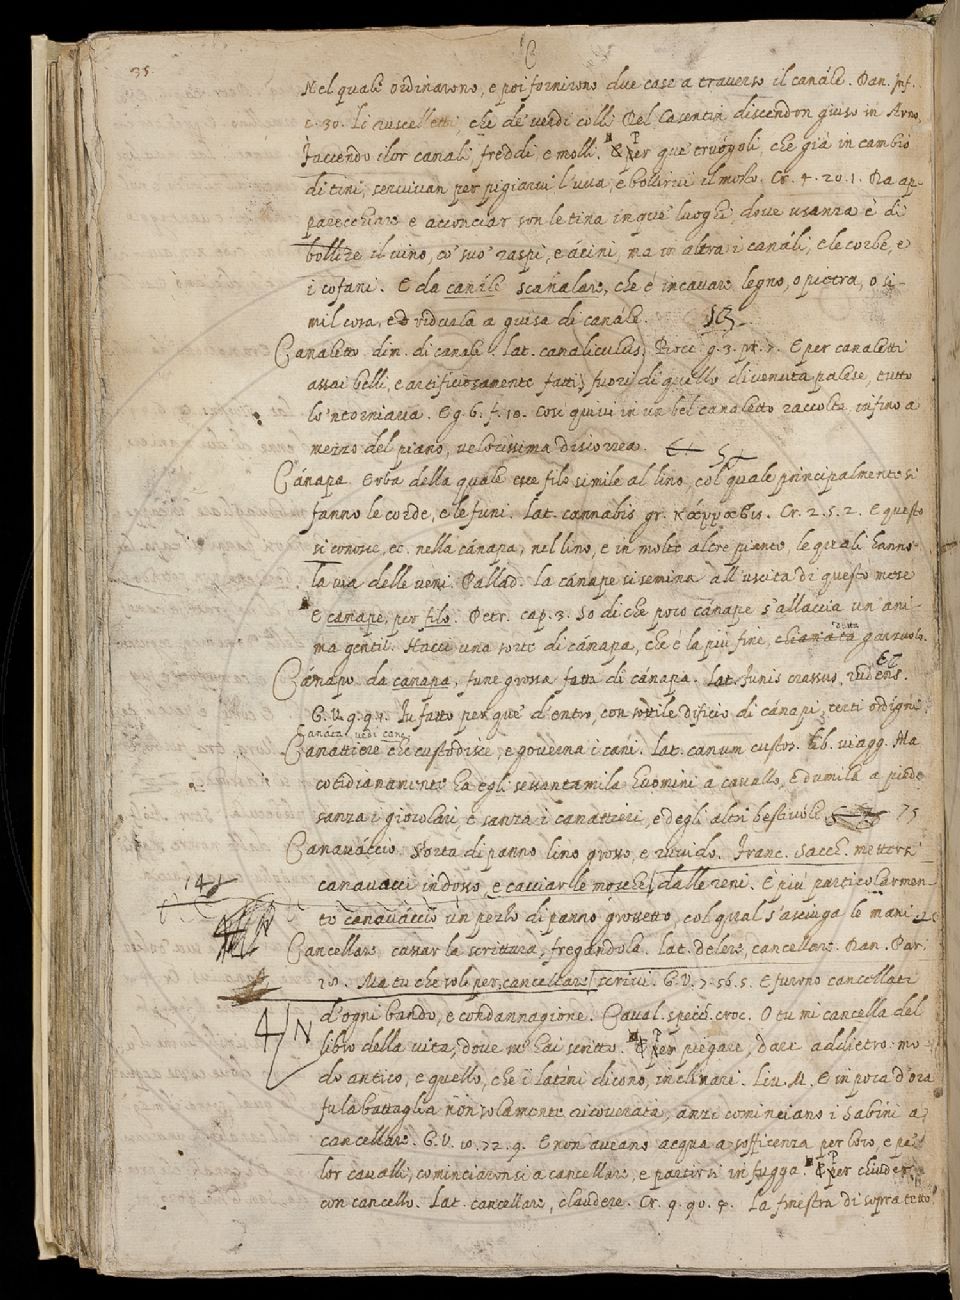 35
C
Nel quale ordinarono, e poi fornirono due case a traverso il canále. Dan. Inf.
c. 30. Li ruscelletti, che de' verdi colli Del Casentin discendon giuso in Arno,
Facendo i lor canali, freddi, e molli. & Per que' truógoli, che già in cambio
di tini, servivan per pigiarvi l'uva, e bollirvi il mosto. Cr. 4. 20. 1. Da ap-
parecchiare e acconciar son le tina in que' luoghi, dove usanza è di
bollire il vino, co' suo' raspi, e ácini, ma in altra i canáli, e le corbe, e
i cofani. E da canále scanalare, che è incavare legno, o pietra, o si-
mil cosa, e ridurla a guisa di canále.
Canaletto. dim. di canale. lat. canaliculus. Bocc. g. 3. pr. 7. E per canaletti
assai belli, e artificiosamente fatti, fuori di quello divenuta palese, tutto
lo 'ntorniava. E g. 6. f. 10. Così quivi in un bel canaletto raccolta, infino a
mezzo del piano, velocissima discorrea.
Cánapa. Erba della quale esce filo simile al lino, col quale principalmente si
fanno le corde, e le funi. Lat. cannabis gr. κάνναβις. Cr. 2. 5. 2. E questo
si conosce, ec. nella cánapa, nel lino, e in molte altre piante, le quali hanno
la via delle veni. Pallad. La cánape si semina all'uscita di questo mese
E canape, per filo. Petr. cap. 3. So di che poco cánape s'allaccia un'ani-
ma gentil. Hacci una sorte di cánapa, che è la più fine, chiamata garzuolo.
Cánapo. da canapa, fune grossa fatta di cánapa. Lat. funis crassus, rudens.
G. V. 9. 94. Fu fatto per que' d'entro, con sottile dificio di cánapi, certi ordigni.
Canáta vedi cane
Canattiere che custodisce, e governa i cani. Lat. canum custos. lib. viagg. Ma
cotidianamente ha egli sessantamila huomini a cavallo, e dumila a piede
sanza i giocolari, e sanza i canattieri, e degli altri bestivole 75
Canaváccio. Sorta di panno lino grosso, e ruvido. Franc. Sacch. mettersi
canavacci indosso, e cacciar le mosche dalle reni. E più particolarmen-
to canaváccio un pezzo di panno grossetto, col qual s'asciuga le mani
14
Cancellare. cassar la scrittura, fregandola. lat. delere, cancellare. Dan. Par.
18. Ma tu che sol per cancellare scrivi. G. V. 7. 56. 5. E furono cancellati
4 N
d'ogni bando, e condannagione. Caval. specc. croc. O tu mi cancella del
libro della vita, dove m'hai scritto. & Per piegare, dare addietro mo-
do antico, e quello, che i latini dicono, inclinari. Liv. M. E in poca d'ora
fu la battaglia non solamente ricoverata, anzi cominciano i Sabini a
cancellare. G. V. 10. 72. 9. E non aveano acqua a sofficenza per loro, e pe'
lor cavalli, cominciaronsi a cancellare, e partirsi in fugga. & Per chiuder
con cancello. Lat. cancellare, claudere. Cr. 9. 90. 4. La finestra di sopra tetto